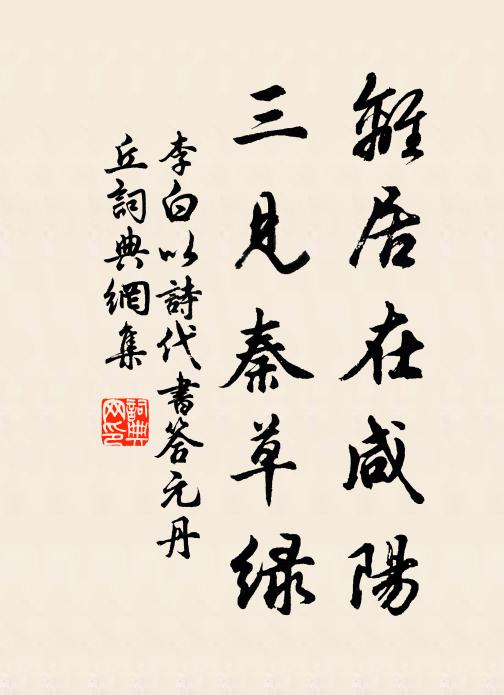 離居在咸陽
三見秦草緑
李白以詩代書答元丹
丘詞典網集
詞典网印